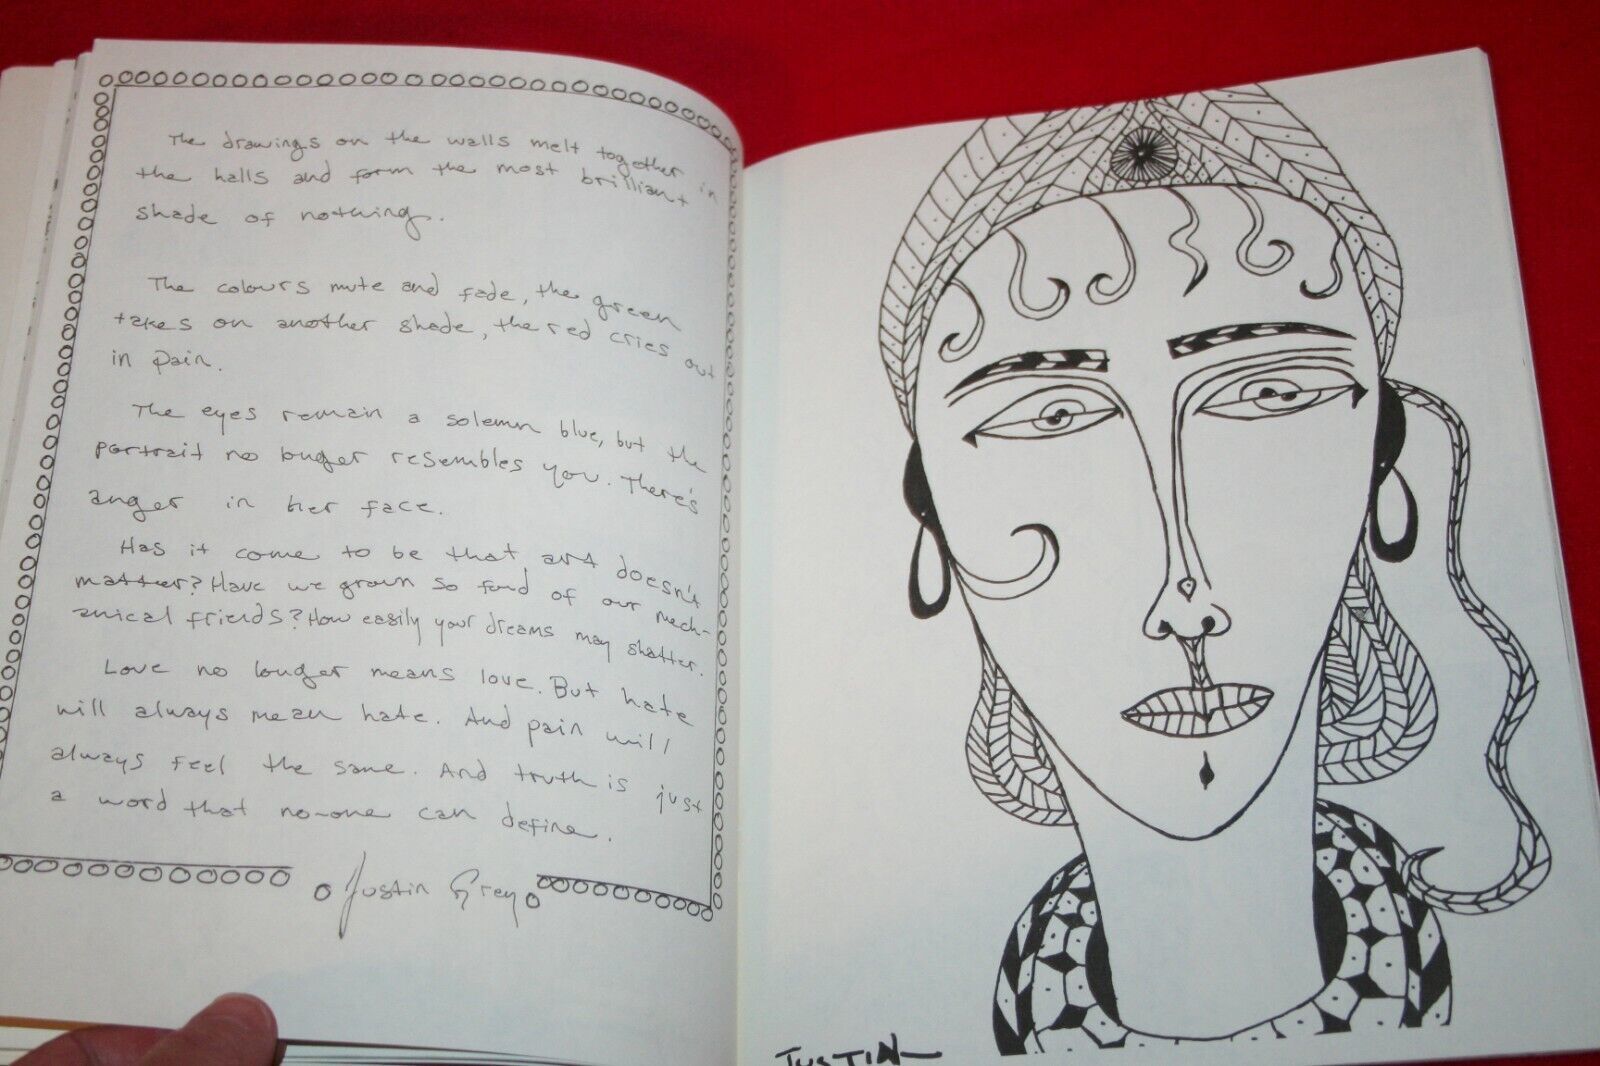 The drawings on the walls melt together in
the halls and form the most brilliant
shade of nothing.
The colours mute and fade, the green
takes on another shade, the red cries out
in pain.
The eyes remain a solemn blue, but the
portrait no longer resembles you. There's
anger in her face.
Has it come to be that art doesn't
matter? Have we grown so fond of our mech-
anical friends? How easily your dreams may shatter.
Love no longer means love. But hate
will always mean hate. And pain will
always feel the same. And truth is just
a word that no-one can define.
Justin Grey
JUSTIN